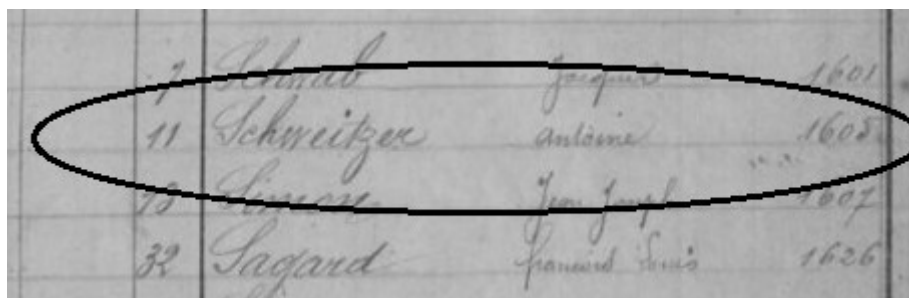 7 Schwab Jacques 1601
11 Schweitzer antoine 1605
13 Simon Jean Joseph 1607
32 Sagard francois Louis 1626